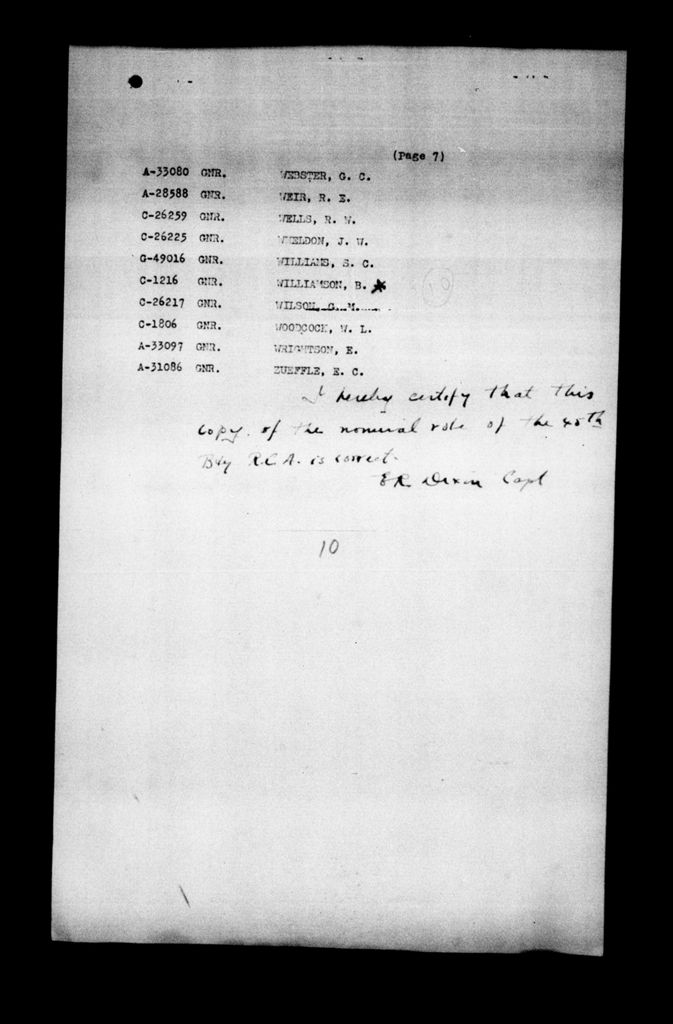 (Page 7)
A-33080 GNR. WEBSTER, G. C.
A-28588 GNR. WEIR, R. E.
C-26259 GNR. WELLS, R. W.
C-26225 GNR. WHELDON, J. W.
G-49016 GNR. WILLIAMS, S. C.
C-1216 GNR. WILLIAMSON, B. ★ (10)
C-26217 GNR. WILSON, G. M.
C-1806 GNR. WOODCOCK, W. L.
A-33097 GNR. WRIGHTSON, E.
A-31086 GNR. ZUEFFLE, E. C.
I hereby certify that this
copy of the nominal role of the
Bty R.C.A. is correct.
ER Dixon Capt
10